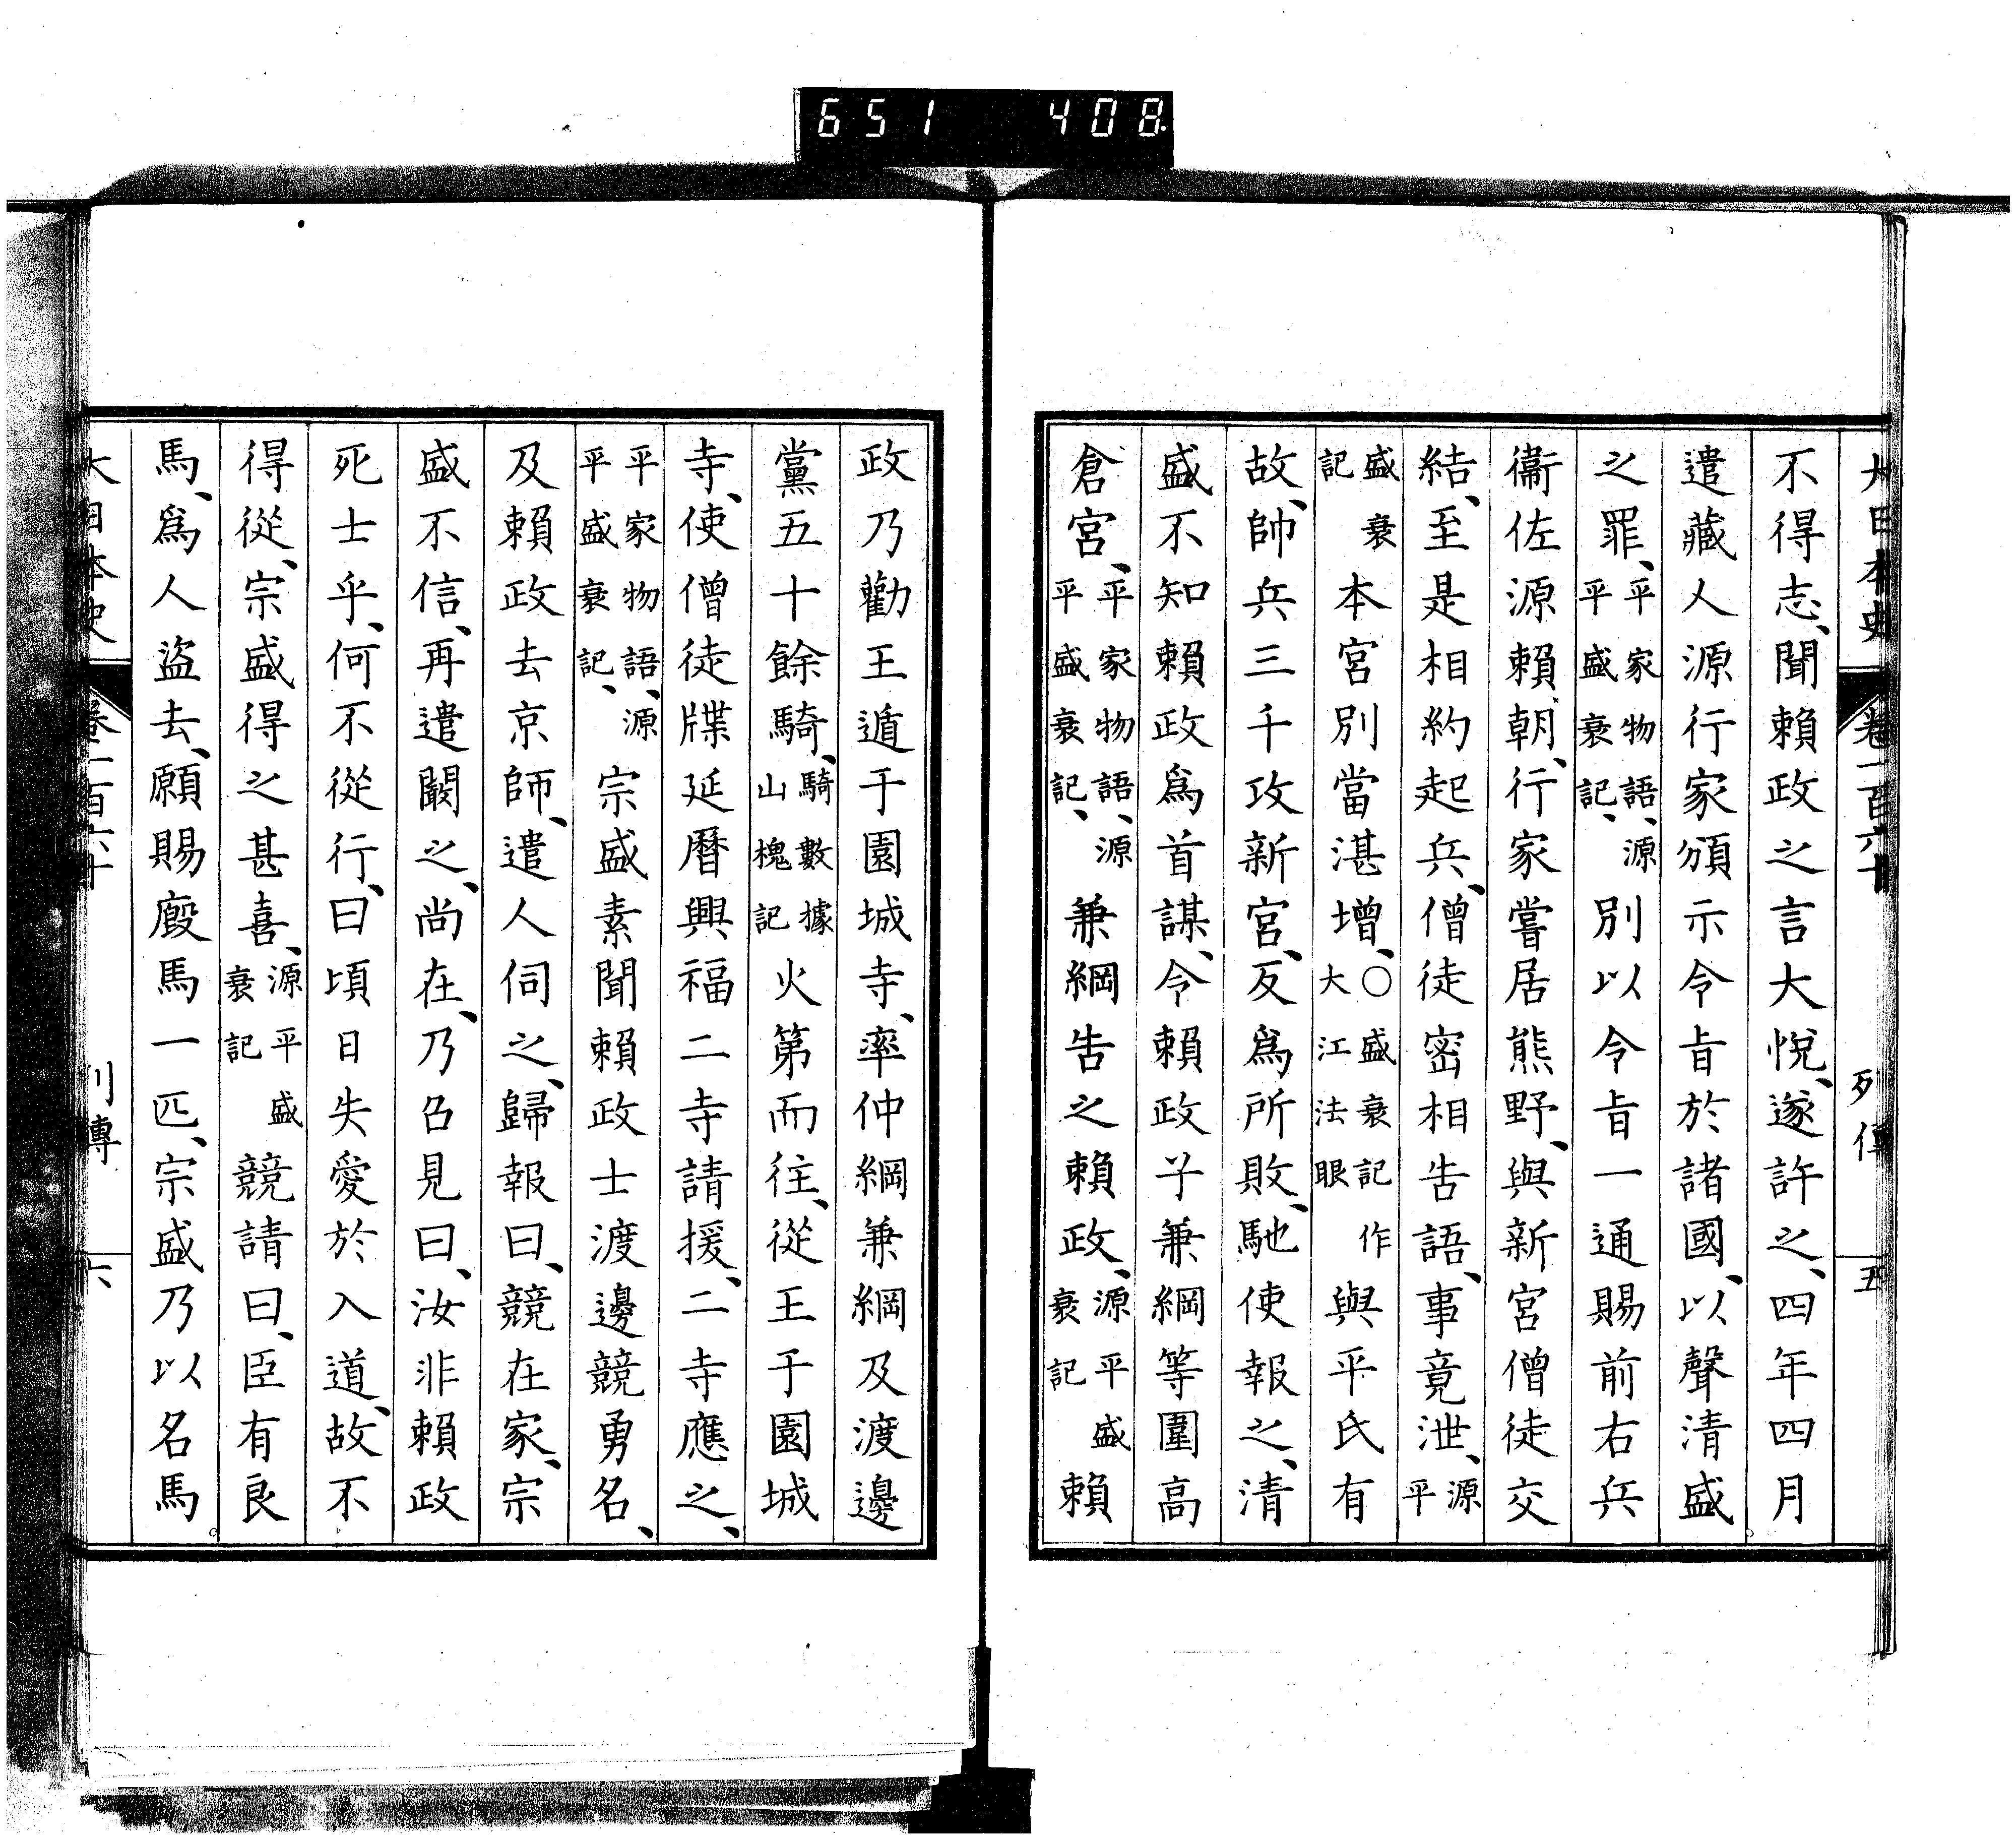 651 408
大日本史 卷一百六十 列傳 五
不得志、聞賴政之言大悅、遂許之、四年四月
遣藏人源行家頒示令旨於諸國、以聲清盛
之罪、平家物語、源平盛衰記、別以令旨一通賜前右兵
衞佐源賴朝、行家嘗居熊野、與新宮僧徒交
結、至是相約起兵、僧徒密相告語、事竟泄、源平
盛衰記本宮別當湛增、○盛衰記作大江法眼與平氏有
故、帥兵三千攻新宮、反爲所敗、馳使報之、清
盛不知賴政爲首謀、令賴政子兼綱等圍高
倉宮、平家物語、源平盛衰記、兼綱告之賴政、源平盛衰記賴
政乃勸王遁于園城寺、率仲綱兼綱及渡邊
黨五十餘騎、騎數據山槐記火第而往、從王于園城
寺、使僧徒牒延曆興福二寺請援、二寺應之、
平家物語、源平盛衰記、宗盛素聞賴政士渡邊競勇名、
及賴政去京師、遣人伺之、歸報曰、競在家、宗
盛不信、再遣闞之、尚在、乃召見曰、汝非賴政
死士乎、何不從行、曰頃日失愛於入道、故不
得從、宗盛得之甚喜、源平盛衰記競請曰、臣有良
馬、爲人盜去、願賜廄馬一匹、宗盛乃以名馬
大日本史 卷一百六十 列傳 六